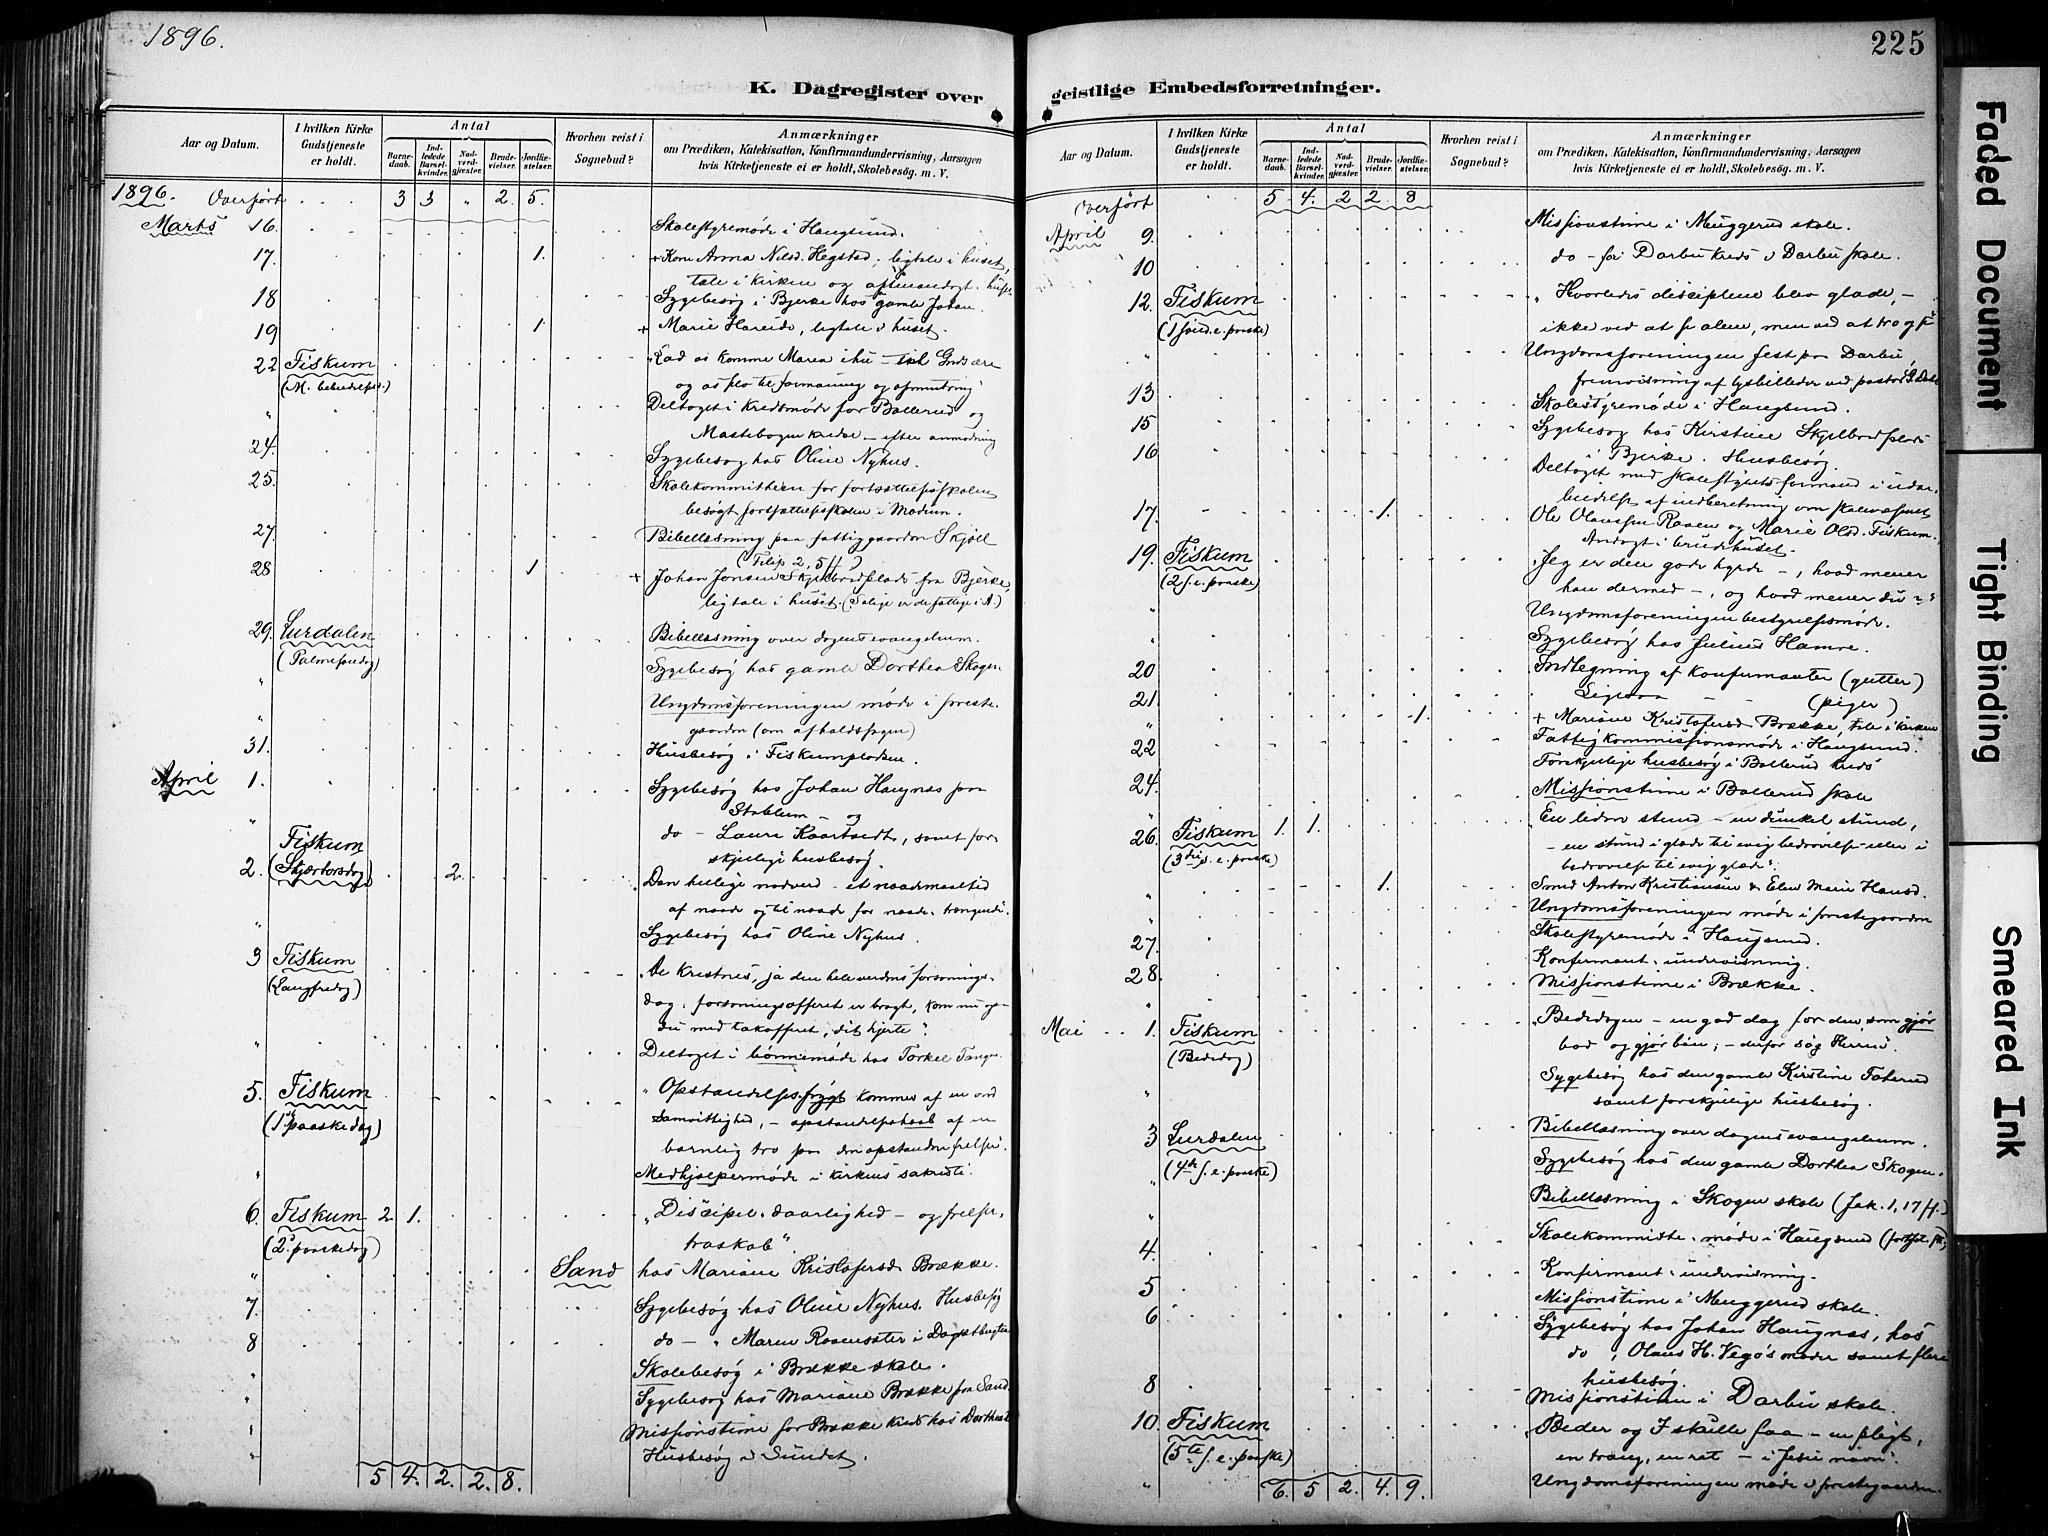 1896.
K. Dagregister over
Aar og Datum.
I hvilken Kirke Gudstjeneste er holdt.
Antal
Barnedaab.
Indledede Barselkvinder.
Nadverdgjæster.
Brudevielser.
Jordfæstelser.
Hvorhen reist i Sognebud?
Anmærkninger
om Prædiken, Katekisation, Konfirmandundervisning, Aarsagen
hvis Kirketjeneste ei er holdt, Skolebesøg. m. V.
1896. Overført . . . 3 3 " 2. 5.
Marts 16. Skolestyremøde i Haugsund.
17. 1. + Kone Anna Nilsd. Hegstad; ligtale i huset,
tale i kirken og
18 Sygebesøg i Bjerke hos gamle Johan.
19 1. + Marie Hareide, ligtale i huset.
22 Fiskum "Lad os komme Maria ihu – Guds ære
(M. bebudelse.) og os selv til formaning og opmuntring"
" Deltaget i kredsmøde for Bollerud og
Mastebogen kredse – efter anmodning
24. Sygebesøg hos Oline Nyhus.
25. Skolekommitheen for fortsættelsesskolen
besøgt fortsættelsesskolen i Modum.
27. Bibellæsning paa fattiggaarden Skjøll
(Filip 2, 5 ff)
28 1 + Johan Jonsen Skjelbredplads fra Bjerke,
ligtale i huset. (Salige er de fattige i A.)
29. Lurdalen Bibellæsning over dagens evangelium.
(Palmesøndag) Sygebesøg hos gamle Dorthea Skogen
" Ungdomsforeningen møde i preste-
" gaarden (om afholdssagen)
31. Husbesøg i Fiskumpladsen.
April 1. Sygebesøg hos Johan Haugnæs paa
Stablum – og
" do – Laura Kaartvedt, samt for-
Fiskum skjelige husbesøg.
2. (Skjærtorsdag) 2. "Den hellige nadverd – et naademaaltid
af naade og til naade for naade-trængende".
" Sygebesøg hos Oline Nyhus.
3 Fiskum "De kristnes, ja den hele verdens forsonings-
(Langfredag) dag; forsoningsofferet er bragt, kom nu og-
du med takofferet, dit hjerte".
" Deltaget i bønnemøde hos Torkel Tangen
5. Fiskum "Opstandelsesfrygt kommer af en ond
(1ste paaskedag) Samvittighed, – opstandelseshaab af en
barnlig tro paa den opstandne frelser".
" Medhjælpermøde i kirkens sakristi.
6. Fiskum 2. 1. "Discipel-daarlighed – og frelser-
(2. paaskedag) troskab".
" Sand hos Mariane Kristofersd. Brække.
7. Sygebesøg hos Oline Nyhus. Husbesøg
8 do – " Maren Raaensæter i
" Skolebesøg i Brække skole.
" Sygebesøg hos Mariane Brække paa Sand.
" Missionstime for Brække kreds hos
" Husbesøg i Sundet.
5 4. 2. 2. 8.
225
geistlige Embedsforretninger.
Aar og Datum.
I hvilken Kirke Gudstjeneste er holdt.
Antal
Barnedaab.
Indledede Barselkvinder.
Nadverdgjæster.
Brudevielser.
Jordfæstelser.
Hvorhen reist i Sognebud?
Anmærkninger
om Prædiken, Katekisation, Konfirmandundervisning, Aarsagen
hvis Kirketjeneste ei er holdt, Skolebesøg. m. V.
Overført 5 4. 2 2. 8
April 9. Missionstime i Muggerud skole.
10 do – for Darbu kreds i Darbu skole.
12. Fiskum "Hvorledes disciplene blev glade, –
(1 sønd. e. paaske) ikke ved at se alene, men ved at tro og se"
" Ungdomsforeningen fest paa Darbu,
fremvisning af lysbilleder ved pastor
13 Skolestyremøde i Haugsund.
15 Sygebesøg hos Kirstine Skjelbredplads
i Bjerke. Husbesøg.
16 Deltaget med skolestyrets formand i udar-
beidelse af indberetning om skolevæsenet
17. 1. Ole Olaussen Raaen og Marie Olsd. Fiskum.
Andagt i brudehuset.
19. Fiskum "Jeg er den gode hyrde –, hvad mener
(2 s. e. paaske) han dermed –, og hvad mener du –"
" Ungdomsforeningen bestyrelsesmøde.
" Sygebesøg hos Julius Hamre.
20 Indtegning af konfirmanter (gutter)
21. Ligesaa – (piger)
" 1. + Mariane Kristofersd. Brække, tale i kirken
22 Fattigkommissionsmøde i Haugsund.
24. Forskjelige husbesøg i Bollerud kreds
" Missionstime i Bollerud skole
26. Fiskum 1. 1. "En liden stund – en dunkel stund,
(3die s. e. paaske) – en stund i glæde til evig bedrøvelse eller i
bedrøvelse til evig glæde".
" 1. Smed Anton Kristiansen & Elen Marie Hansd.
" Ungdomsforeningen møde i prestegaarden
27. Skolestyremøde i Haugsund.
28. Konfirmant-undervisning.
" Missionstime i Brække.
Mai 1. Fiskum "Bededagen – en god dag for den, som gjør
(Bededag) bod og gjør bøn; – derfor søg Herren".
" Sygebesøg hos den gamle Kirstine Faterud
samt forskjelige husbesøg.
3 Lurdalen Bibellæsning over dagens evangelium.
(4de s. e. paaske) Sygebesøg hos den gamle Dorthea Skogen.
" Bibellæsning i Skogen skole (Jak. 1, 17 ff.)
4. Skolekommithe-møde i Haugsund
5 Konfirmant-undervisning.
6 Missionstime i Muggerud skole.
" Sygebesøg hos Johan Haugnæs, hos
do, Olaus H. Vego's moder samt flere
husbesøg.
8 Missionstime i Darbu skole.
10. Fiskum "Beder og I skulle faa – en pligt,
(5te s. e. paaske) en trang, en ret – i Jesu navn".
" 6. 5 2. 4. 9. Ungdomsforeningen møde i prestegaarden.
Faded Document
Tight Binding
Smeared Ink